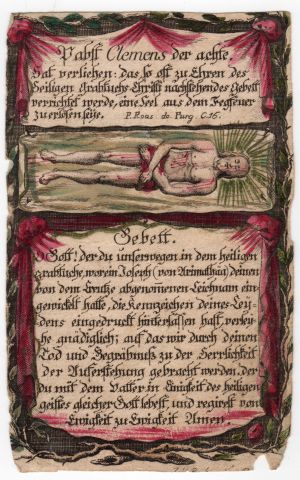 Pabst Clemens der achte,
Hat verliehen: das so oft zu Ehren des
Heiligen Grabtuchs Christi nachstehendes Gebett
verrichtet werde, eine Seel aus dem Fegfeuer
zu erlösen seye. P. Rous de Purg C.16.
Gebett.
O Gott, der du unserwegen in dem heiligen
grabtuche, worein Joseph (von Arimathia) deinen
von dem Creutze abgenommenen Leichnam ein
gewickelt hatte, die Kennzeichen deines Ley-
dens eingedruckt hinterlassen hast, verley-
he gnädiglich, auf das wir durch deinen
Tod und Begräbnuß zu der Herrlichkeit
der Auferstehung gebracht werden, der
du mit dem Vatter in Einigkeit des heiligen
geistes gleicher Gott lebest, und regierst von
Ewigkeit zu Ewigkeit Amen.